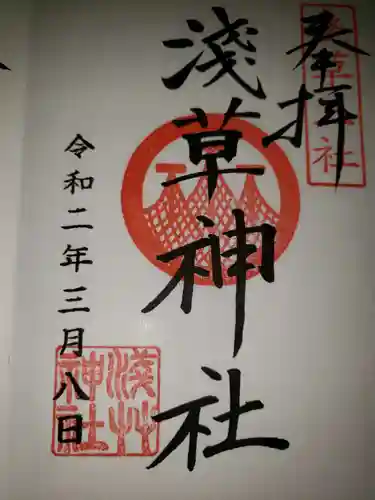 奉拝
淺草神社
令和二年三月八日
淺草神社